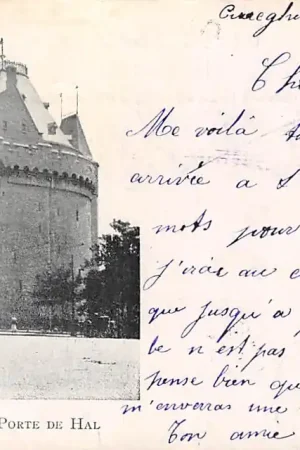 Cureghe
Che
Me voilà
arrivée a
mots pour
j'irai au
que jusqu'à
be n'est pas
pense bien que
m'enverras une
Ton amie
PORTE DE HAL